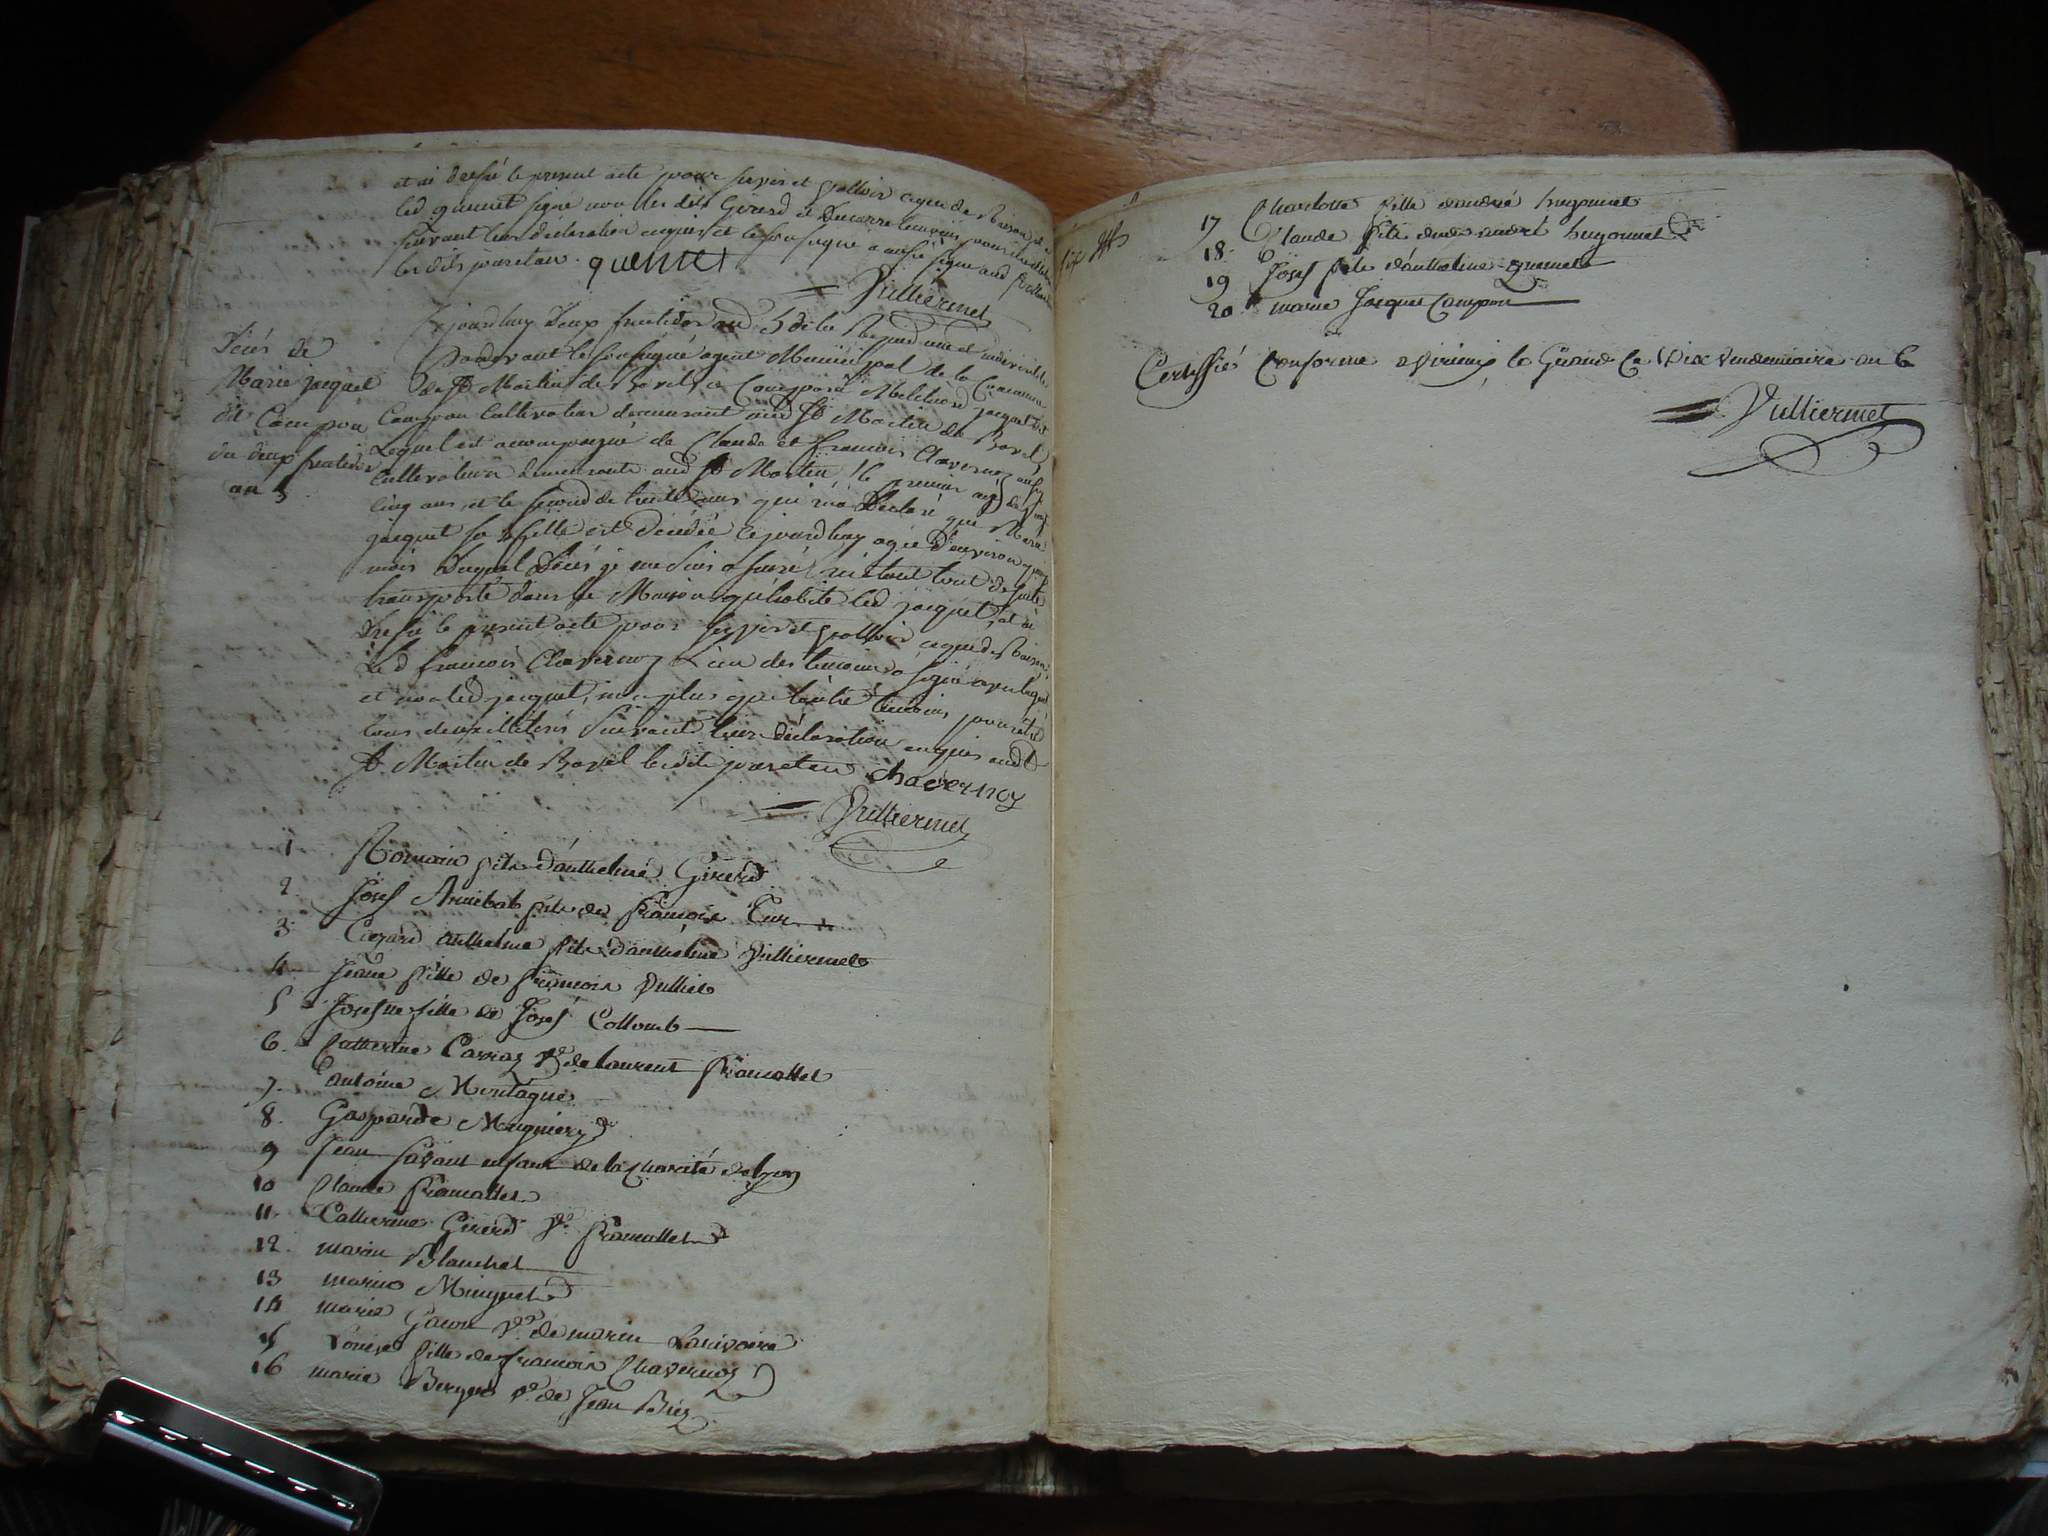 et ai dressé le présent acte pour servir et valloir ce que de Raison et a
led quennet signé non les dits Girerd et
suivant leur déclaration enquis et le soussigné a aussi signé aud
les dits jour et an. quennet
Vulliermet
Décès de
Marie jacquet
dit Compon
du deux fructidor
an 5
Cejourdhuy deux fructidor an 5 de la Republ. une et indivisible
Pardevant le soussigné agent Municipal de la Commune
de St Martin de Bavel, a Comparu Melchiord jacquet dit
Compon Cultivateur demeurant aud St Martin de Bavel
Lequel est accompagné de Claude et françois Chavernoz
Cultivateurs demeurants aud St Martin le premier agé de
cinq ans, et le second de trente ans qui m'a Déclaré que Marie
jacquet sa fille est Décédée Cejourdhuy agée d'environ
mois Duquel Décès je me suis assuré m'étant tout de suite
transporté dans la Maison qu'habite led jacquet, et ai
Dressé le présent acte pour servir et valloir ce que de Raison,
Led françois Chavernoz L'un des temoins a signé avec le
et non led jacquet, non plus que l'autre temoins pour être
tous deux illiterés suivant leur déclaration enquis aud
St Martin de Bavel les dits jour et an chavernoz
Vulliermet
1 Romain fils d'anthelme Girerd
2. Josef Annibal fils de françois Cur
3. Cezard anthelme fils d'anthelme Vulliermet
4. Jeane fille de françois Vulliet
5 Josefne fille de Josef Collomb
6. Catherine Carraz Ve de Laurent Framallet
7. antoine Montagne
8. Gasparde Mugniery
9 Jean Savant enfant de la charité de lyon
10 Claude Framallet
11. Catherine Girerd Ve Framallet
12. marin Blanchet
13 marie Minguet
14 marie Gavou Ve de marin Larivoire
15 Louise fille de françois Chavernoz
16 marie Berger Ve de Jean Briez
17 Charlotte fille d'andré hugonnet
18. Claude fils d'andré hugonnet
19 Josef fils d'anthelme quennet
20. marie Jacquet Compon
Certiffié Conforme a virieux le Grand le Dix Vendemiaire an 6
Vulliermet